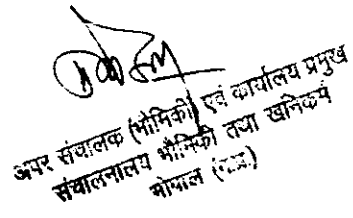 अपर संचालक (भौमिकी) एवं कार्यालय प्रमुख
संचालनालय भौमिकी तथा खनिकर्म
भोपाल (म.प्र.)